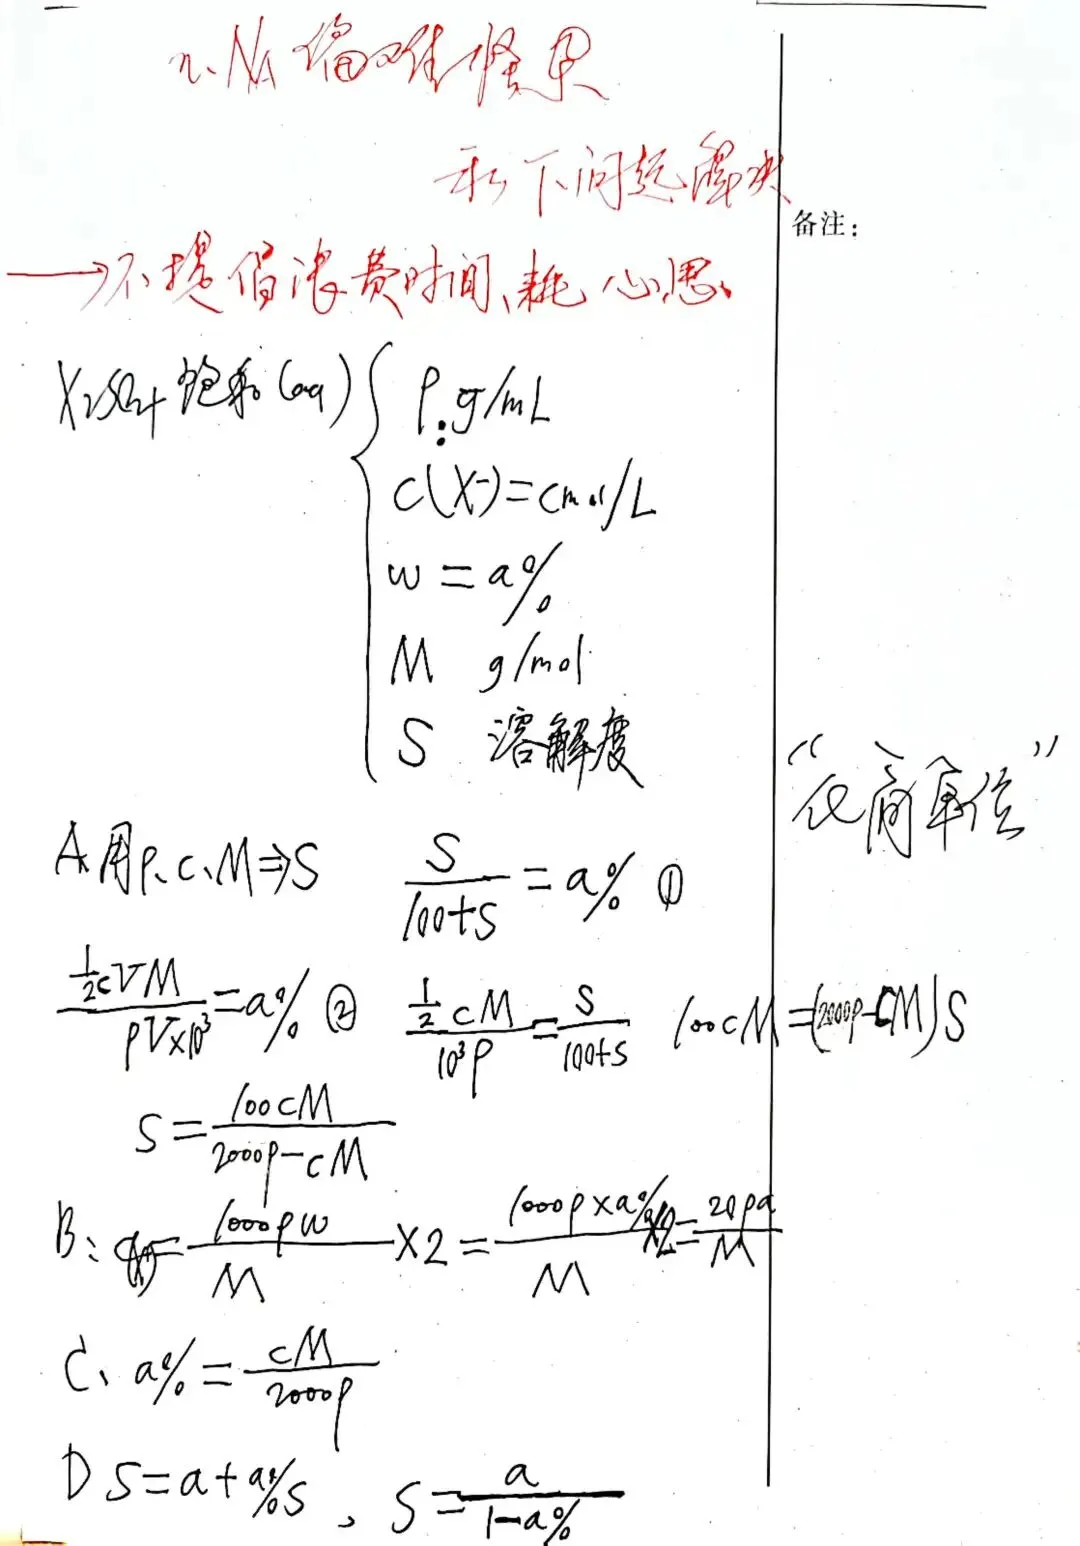 n、NA 偏难怪
私下问题解决
备注：
→不提倡浪费时间、耗心思。
X₂SO₄ 饱和(aq)
ρ:g/mL
c(X⁻)=cmol/L
w=a%
M g/mol
S 溶解度
“化简单位”
A 用ρ、c、M⇒S S/(100+S)=a% ①
½cVM/(ρV×10³)=a% ② ½cM/(10³ρ)=S/(100+S) 100cM=(2000ρ-cM)S
S=100cM/(2000ρ-cM)
B: c(X)=1000ρw/M×2=1000ρ×a%/M×2=20ρa/M
C、a%=cM/2000ρ
D S=a+a%S、S=a/(1-a%)